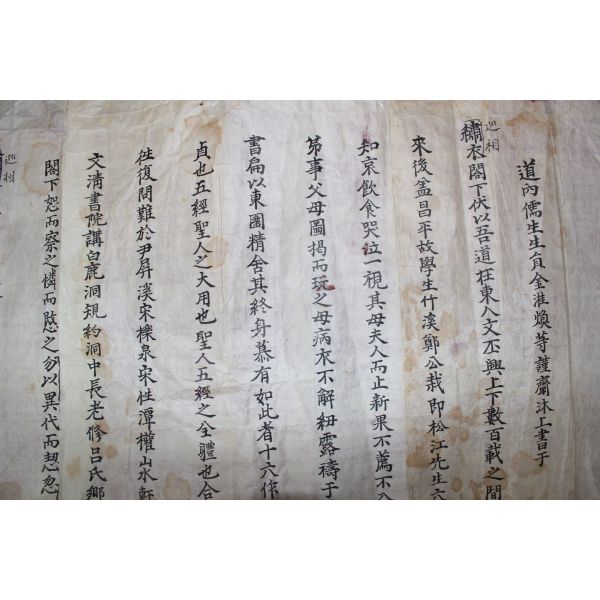 道內儒生生員金準煥等謹齋沐上書于
巡相
繡衣閤下伏以吾道在東人文丕興上下數百載之間
來後孟昌平故學生竹溪鄭公栽即松江先生六
知哀飲食哭泣一視其母夫人而止新果不薦不
第事父母圖揭而玩之母病衣不解紐露禱于
書扁以東園精舍其終身慕有如此者十六作
貞也五經聖人之大用也聖人五經之全體也合
徃復問難於尹屛溪宋櫟泉宋性潭權山水軒
文淸書院講白鹿洞規約洞中長老修呂氏鄉
閤下恕而察之憐而愍之勿以異代而恝忽
巡相